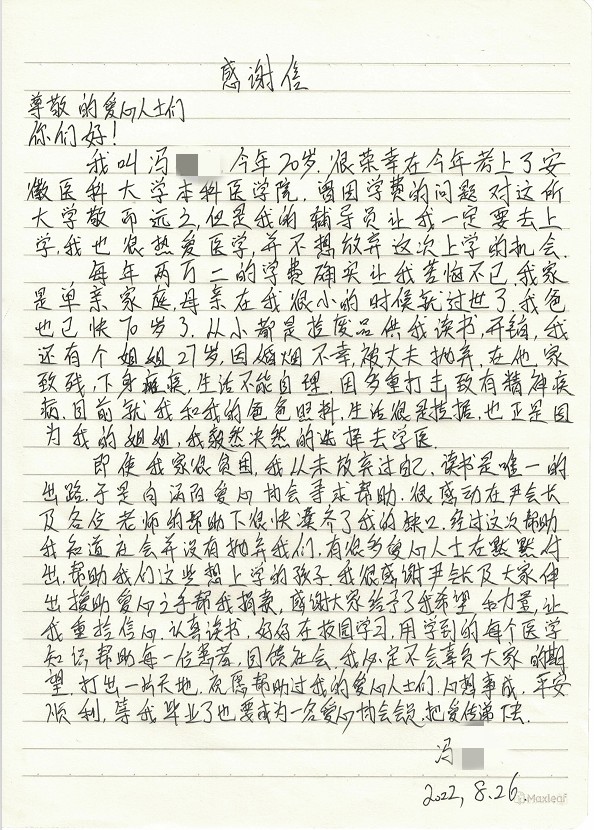 感谢信
尊敬的爱心人士们
你们好!
我叫冯 今年20岁.很荣幸在今年考上了安
徽医科大学本科医学院.曾因学费的问题对这所
大学敬而远之,但是我的辅导员让我一定要去上
学,我也很热爱医学,并不想放弃这次上学的机会.
每年两万一的学费确实让我苦恼不已.我家
是单亲家庭,母亲在我很小的时候就过世了.我爸
也已快70岁了.从小都是捡废品供我读书,开销,我
还有个姐姐27岁,因婚姻不幸,被丈夫抛弃,在他家
致残,下身瘫痪,生活不能自理.因多重打击致有精神疾
病.目前就我和我的爸爸照料,生活很是拮据,也正是因
为我的姐姐,我毅然决然的选择去学医.
即使我家很贫困,我从未放弃过自己.读书是唯一的
出路.于是向涡阳爱心协会寻求帮助.很感动在尹会长
及各位老师的帮助下很快凑齐了我的缺口.经过这次帮助
我知道社会并没有抛弃我们,有很多爱心人士在默默付
出,帮助我们这些想上学的孩子.我很感谢尹会长及大家伸
出援助爱心之手帮我捐款,感谢大家给予了我希望和力量,让
我重拾信心.认真读书,好好在校园学习,用学到的每个医学
知识帮助每一位患者,回馈社会.我必定不会辜负大家的期
望,打出一片天地,祝愿帮助过我的爱心人士们,心想事成,平安
顺利,等我毕业了也要成为一名爱心协会会员,把爱传递下去.
冯
2022,8.26
Maxleaf